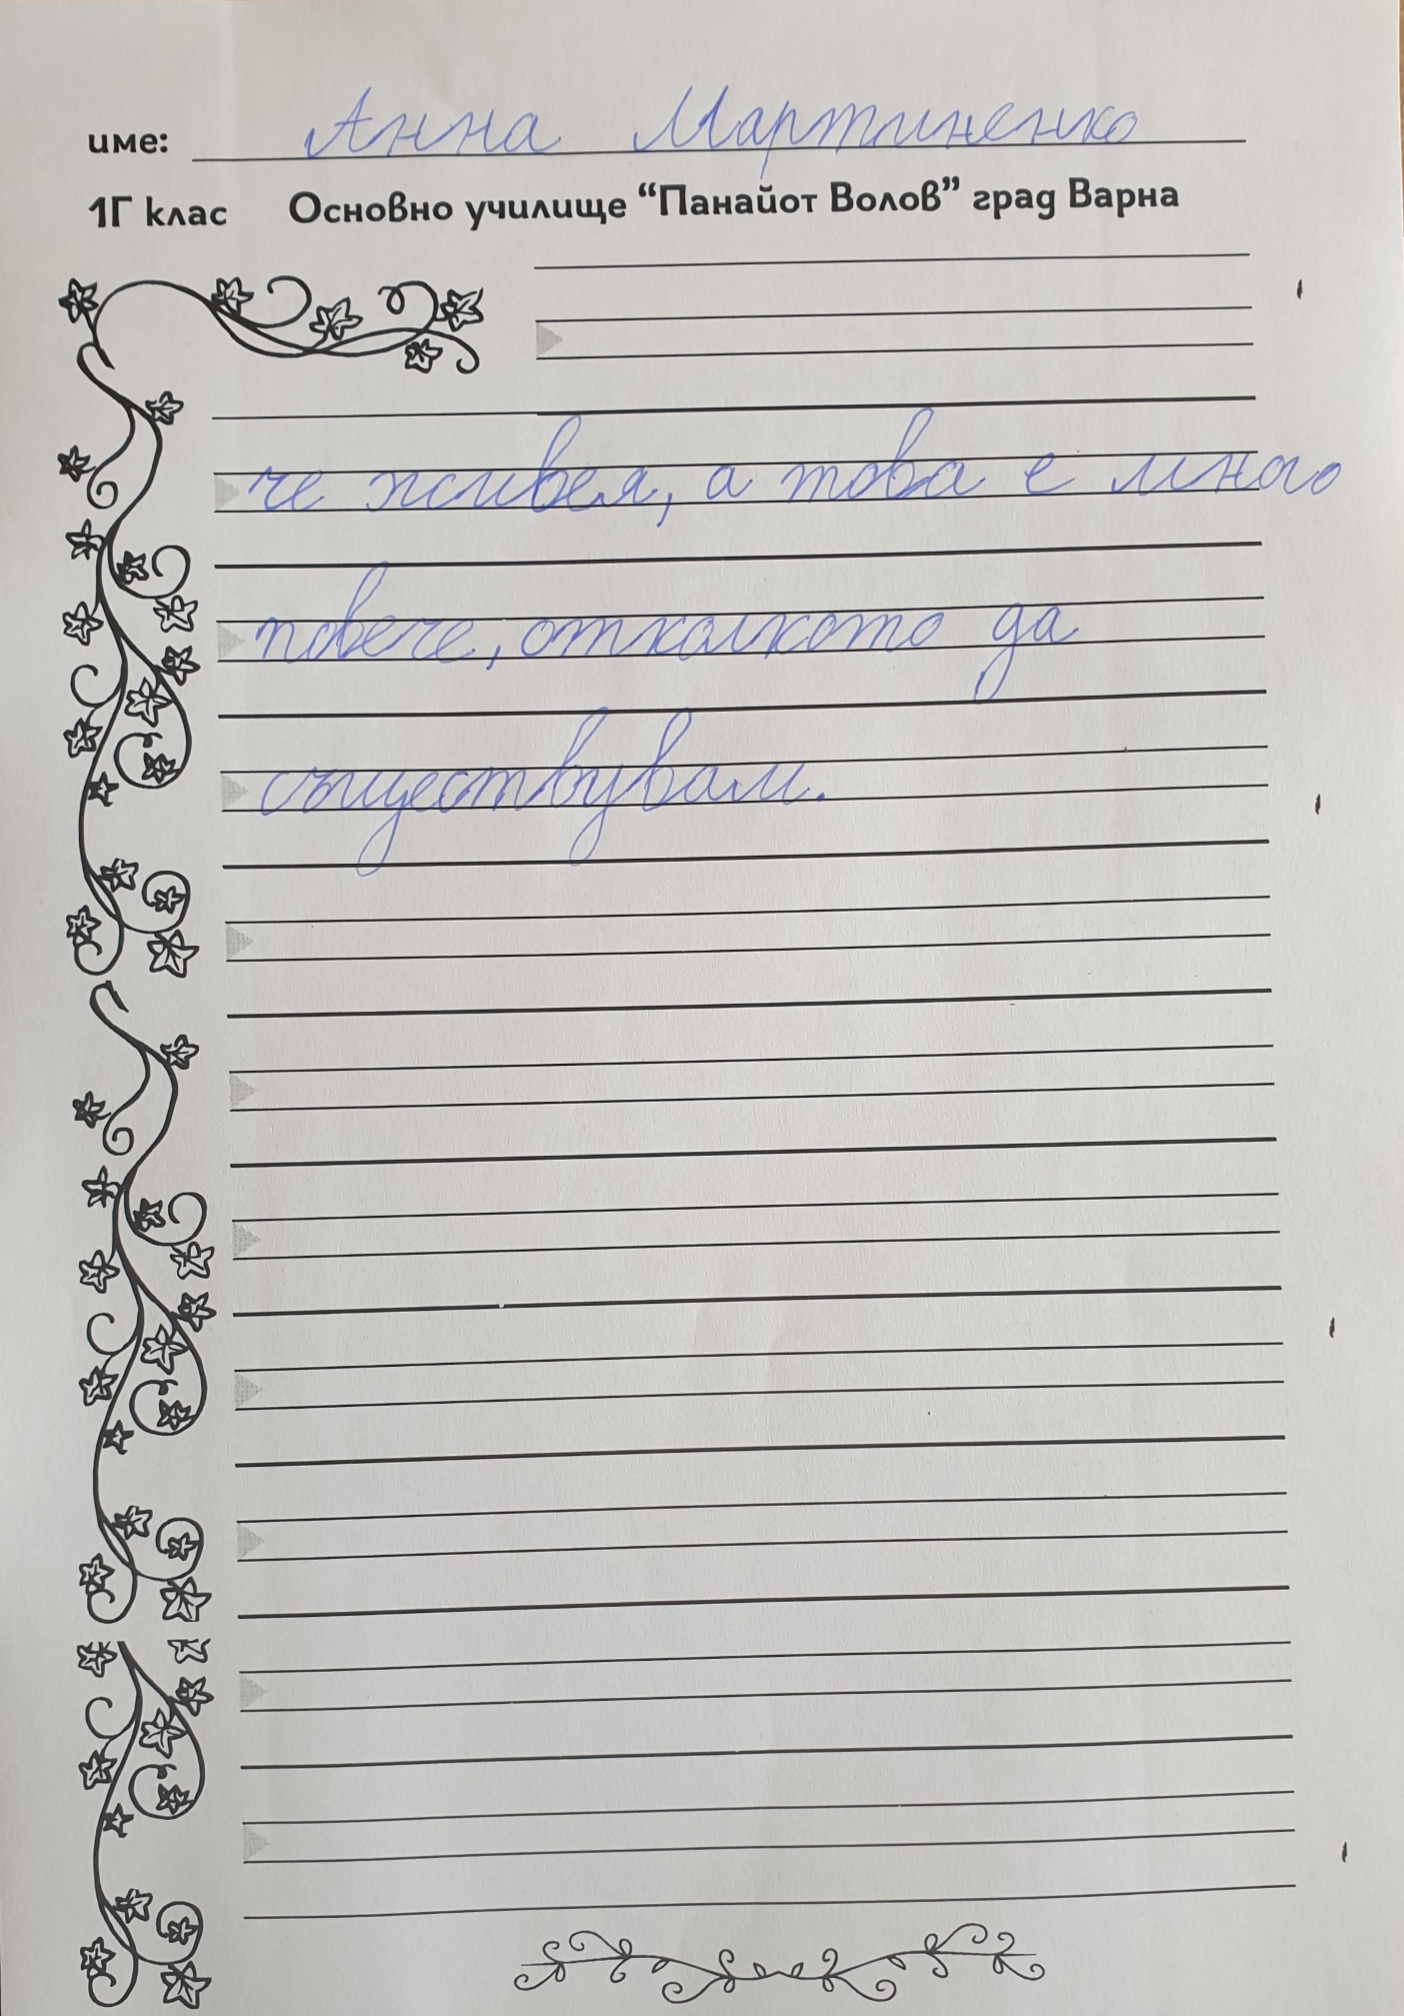 име: Анна Мартиненко
1Г клас Основно училище “Панайот Волов” град Варна
че живея, а това е много
повече, отколкото да
съществувам.